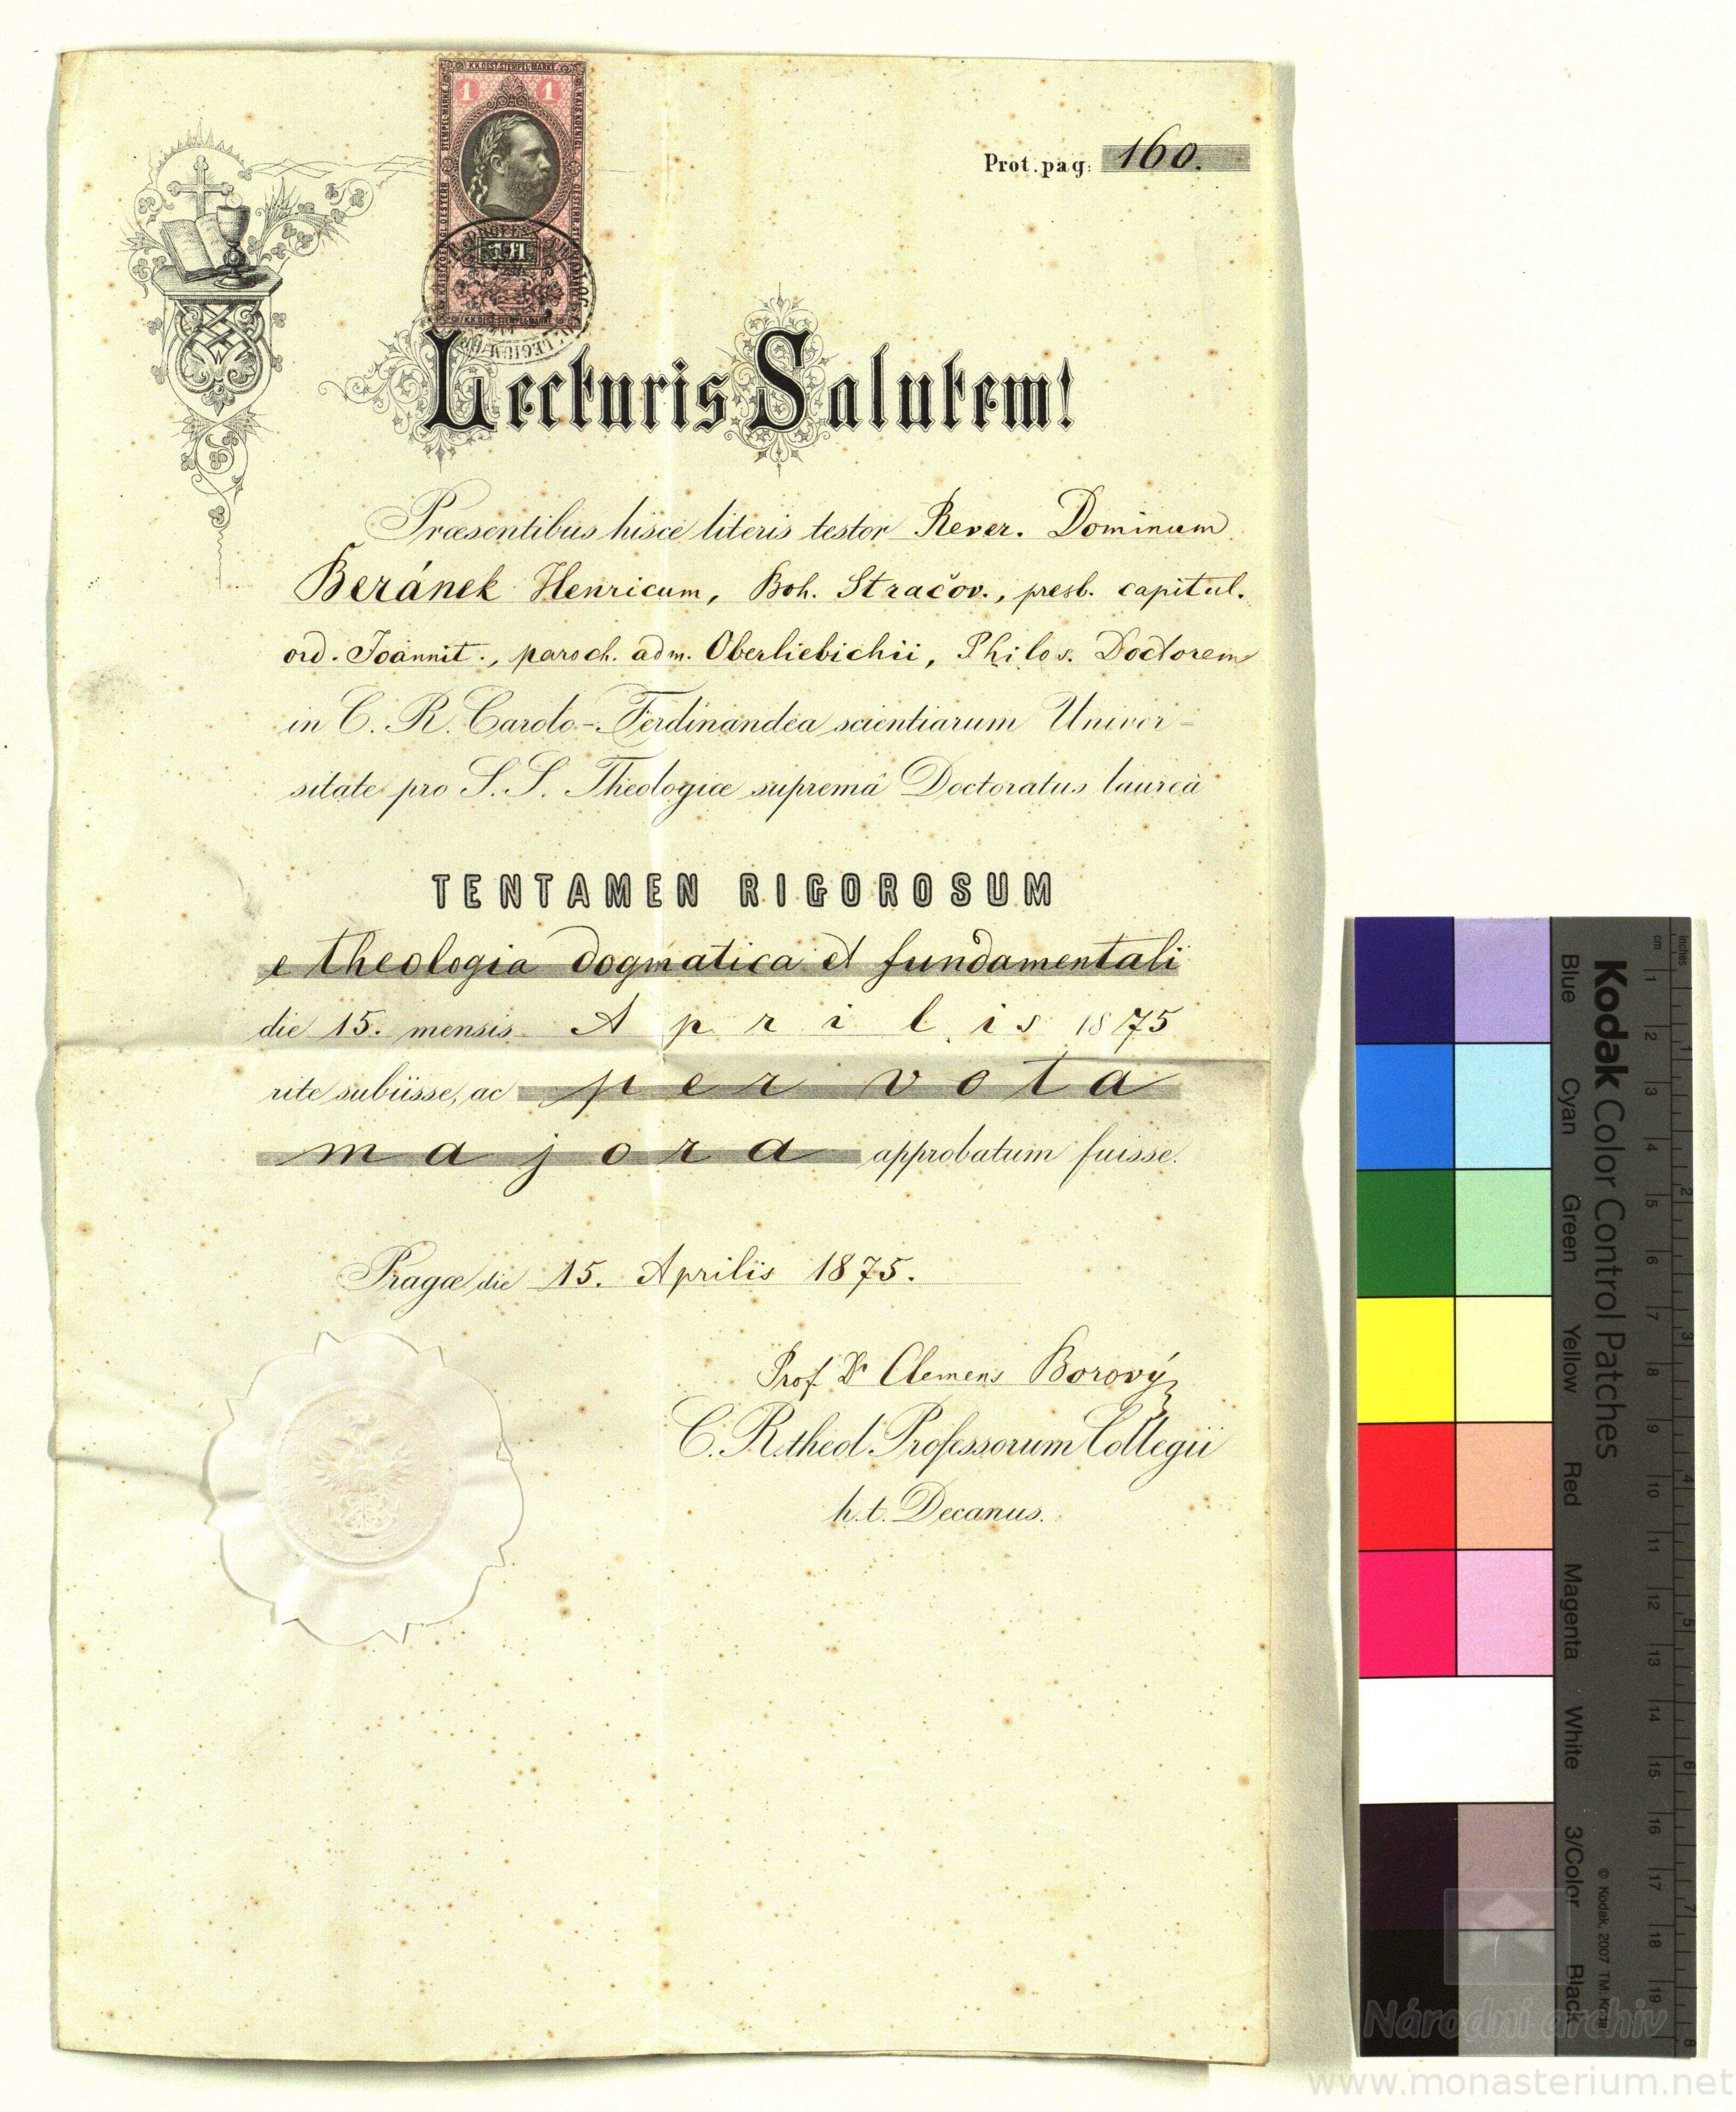 K.K. OEST. STEMPEL-MARKE
1 1
1 FL
Prot. pag: 160.
Lecturis Salutem!
Præsentibus hisce literis testor Rever. Dominum
Beránek Henricum, Boh. Stračov., presb. capitul.
ord. Joannit., paroch. adm. Oberliebichii, Philos. Doctorem
in C. R. Carolo-Ferdinandea scientiarum Univer-
sitate pro S. S. Theologiæ supremâ Doctoratus laureâ
TENTAMEN RIGOROSUM
e theologia dogmatica et fundamentali
die 15. mensis Aprilis 1875
rite subiisse, ac per vota
majora approbatum fuisse.
Pragæ die 15. Aprilis 1875.
Prof. Dr Clemens Borový
C. R. theol. Professorum Collegii
h. t. Decanus.
Kodak Color Control Patches
Blue Cyan Green Yellow Red Magenta White 3/Color Black
© Kodak, 2007 TM: Kodak
inches 1 2 3 4 5 6 7 8
cm 1 2 3 4 5 6 7 8 9 10 11 12 13 14 15 16 17 18 19
Národní archiv
www.monasterium.net